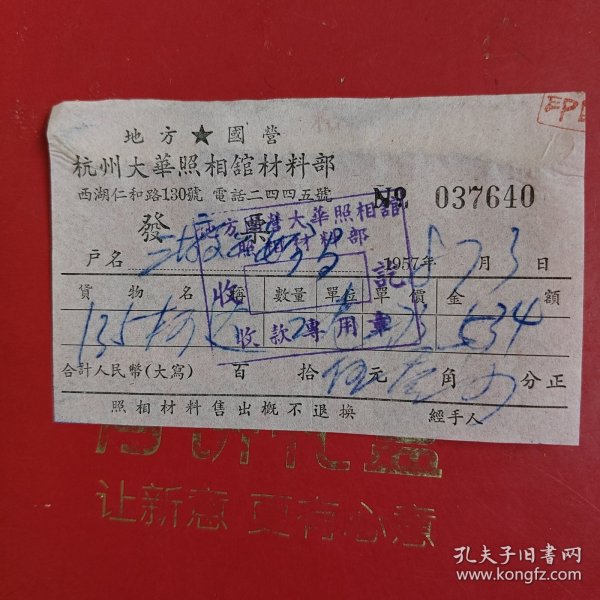 地方★國營
杭州大華照相舘材料部
西湖仁和路130號 電話二四四五號 № 037640
發票
地方國營大華照相舘
照相材料部
收 記
收款專用章
戶名 1957年 8月 3日
貨物名稱 數量 單位 單價 金額
135 2 534
合計人民幣(大寫) 百 拾 伍元 叁角 四分正
照相材料售出概不退換 經手人
让新意 更有心意
孔夫子旧书网
www.kongfz.com